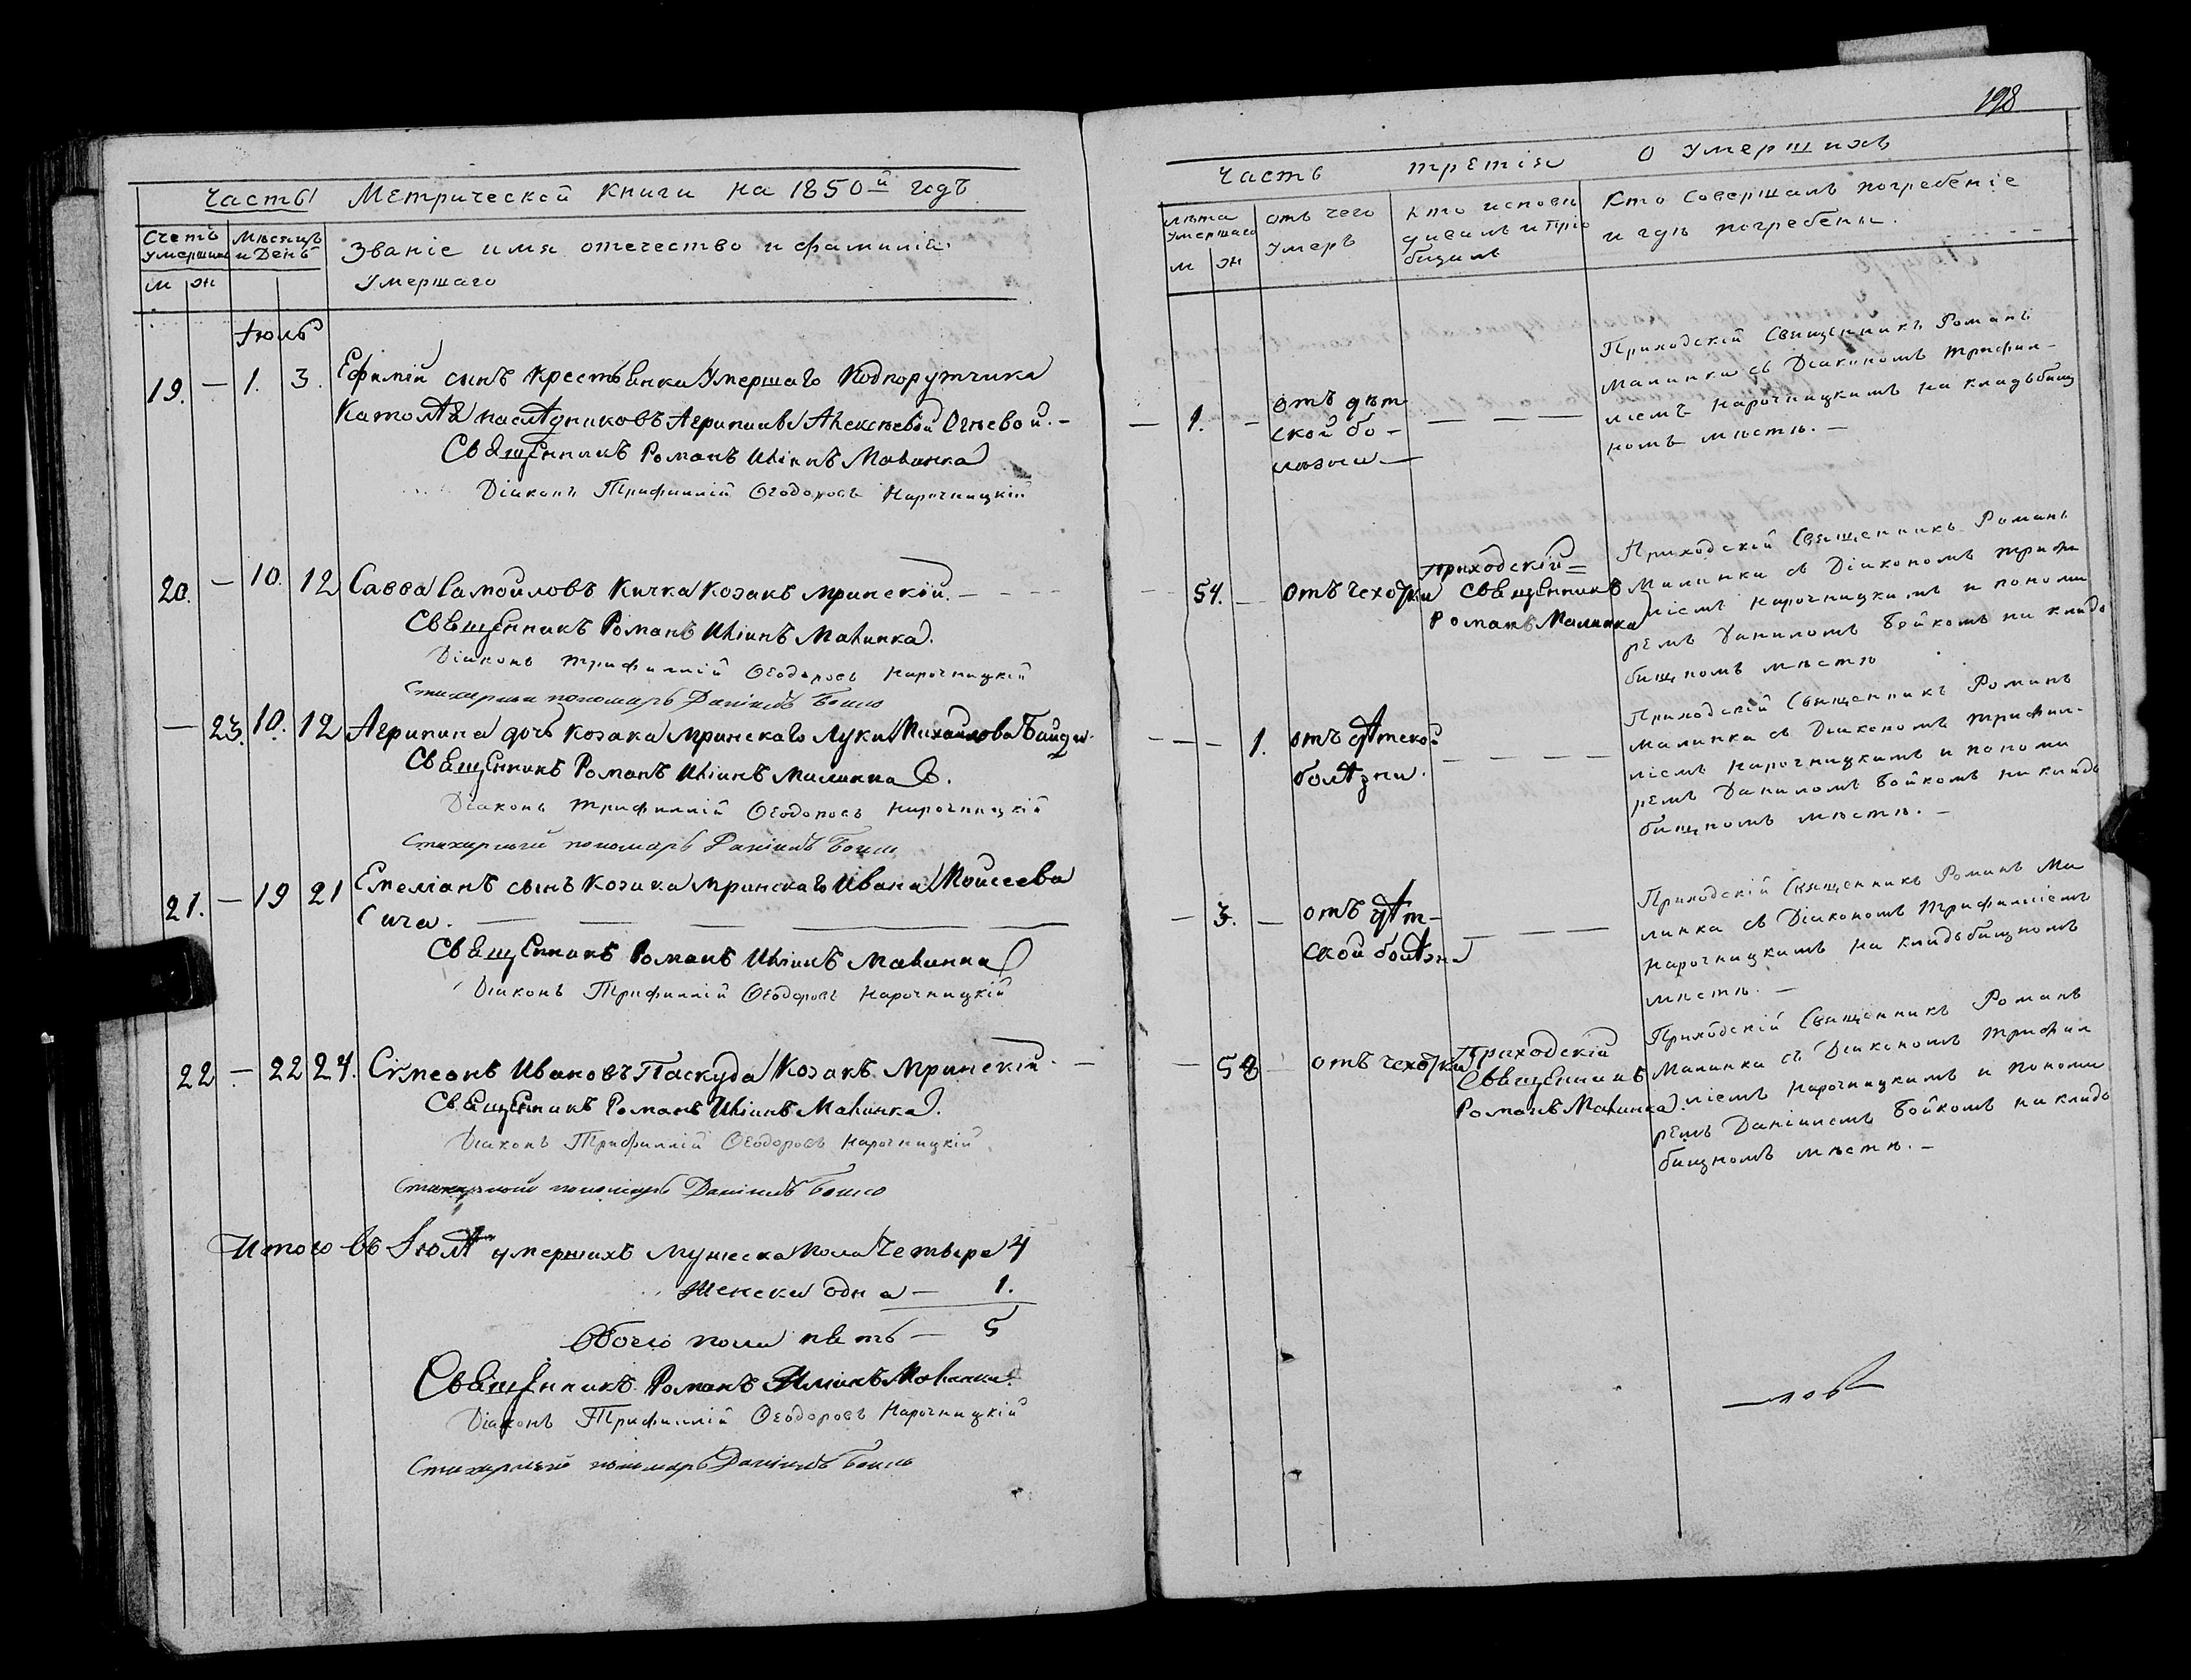 Часть Метрической книги на 1850й годъ
Счетъ умершихъ
Мѣсяцъ и День
Званіе имя отечество и фамилія
Умершаго
м ж
Іюль
19. — 1. 3. Ефимій сынъ крестьянки Умершаго Подпоручика
наслѣдниковъ Агрипины Алексѣевой Огневой. —
Священникъ Романъ Иліинъ Малинка
Діаконъ Трифиллій Ѳеодоровъ Нарочницкій
20. — 10. 12 Савва Самойловъ Кичка козакъ мринскій. — — —
Священникъ Романъ Иліинъ Малинка.
Діаконъ Трифиллій Ѳеодоровъ Нарочницкій
Стихарный пономарь Даніилъ Бойко
— 23. 10. 12 Агрипина дочь козака мринскаго Луки Михайлова
Священникъ Романъ Иліинъ Малинка.
Діаконъ Трифиллій Ѳеодоровъ Нарочницкій
Стихарный пономарь Даніилъ Бойко
21. — 19 21 Емеліанъ сынъ козака мринскаго Ивана Моисеева
Сича. — — — — —
Священникъ Романъ Иліинъ Малинка
Діаконъ Трифиллій Ѳеодоровъ Нарочницкій
22 — 22 24. Сѵмеонъ Ивановъ Паскуда Козакъ Мринскій —
Священникъ Романъ Иліинъ Малинка.
Діаконъ Трифиллій Ѳеодоровъ Нарочницкій
Стихарный пономарь Даніилъ Бойко
Итого въ Іюлѣ умершихъ мужеска пола четыре 4
Женска одна — 1.
Обоего пола пять — 5
Священникъ Романъ Иліинъ Малинка
Діаконъ Трифиллій Ѳеодоровъ Нарочницкій
Стихарный пономарь Даніилъ Бойко
198
Часть третія о умершихъ
лѣта Умершаго
м ж
отъ чего Умеръ
Кто исповѣдивалъ и пріобщалъ
Кто совершалъ погребеніе
и гдѣ погребены.
— 1. —
отъ дѣт
ской бо-
лѣзни —
— — —
Приходскій Священникъ Романъ
Малинка съ Діакономъ Трифил-
ліемъ Нарочницкимъ на кладьбищ
номъ мѣстѣ. —
— 54. — отъ чехотки
Приходскій
Священникъ
Романъ Малинка
Приходскій Священникъ Романъ
Малинка съ Діакономъ Трифи
ліемъ Нарочницкимъ и понома
ремъ Даниломъ Бойкомъ на кладь
бищномъ мѣстѣ
— — — 1. отъ дѣтской
болѣзни.
— — — —
Приходскій Священникъ Романъ
Малинка съ Діакономъ Трифил-
ліемъ Нарочницкимъ и понома
ремъ Даниломъ Бойкомъ на кладь
бищномъ мѣстѣ. —
— 3. — отъ дѣт-
ской болѣзни
— — —
Приходскій Священникъ Романъ Ма
линка съ Діакономъ Трифилліемъ
Нарочницкимъ на кладьбищномъ
мѣстѣ. —
— 58 — отъ чехотки
Приходскій
Священникъ
Романъ Малинка.
Приходскій Священникъ Романъ
Малинка съ Діакономъ Трифил
ліемъ Нарочницкимъ и понома
ремъ Даніиломъ Бойкомъ на кладь
бищномъ мѣстѣ. —